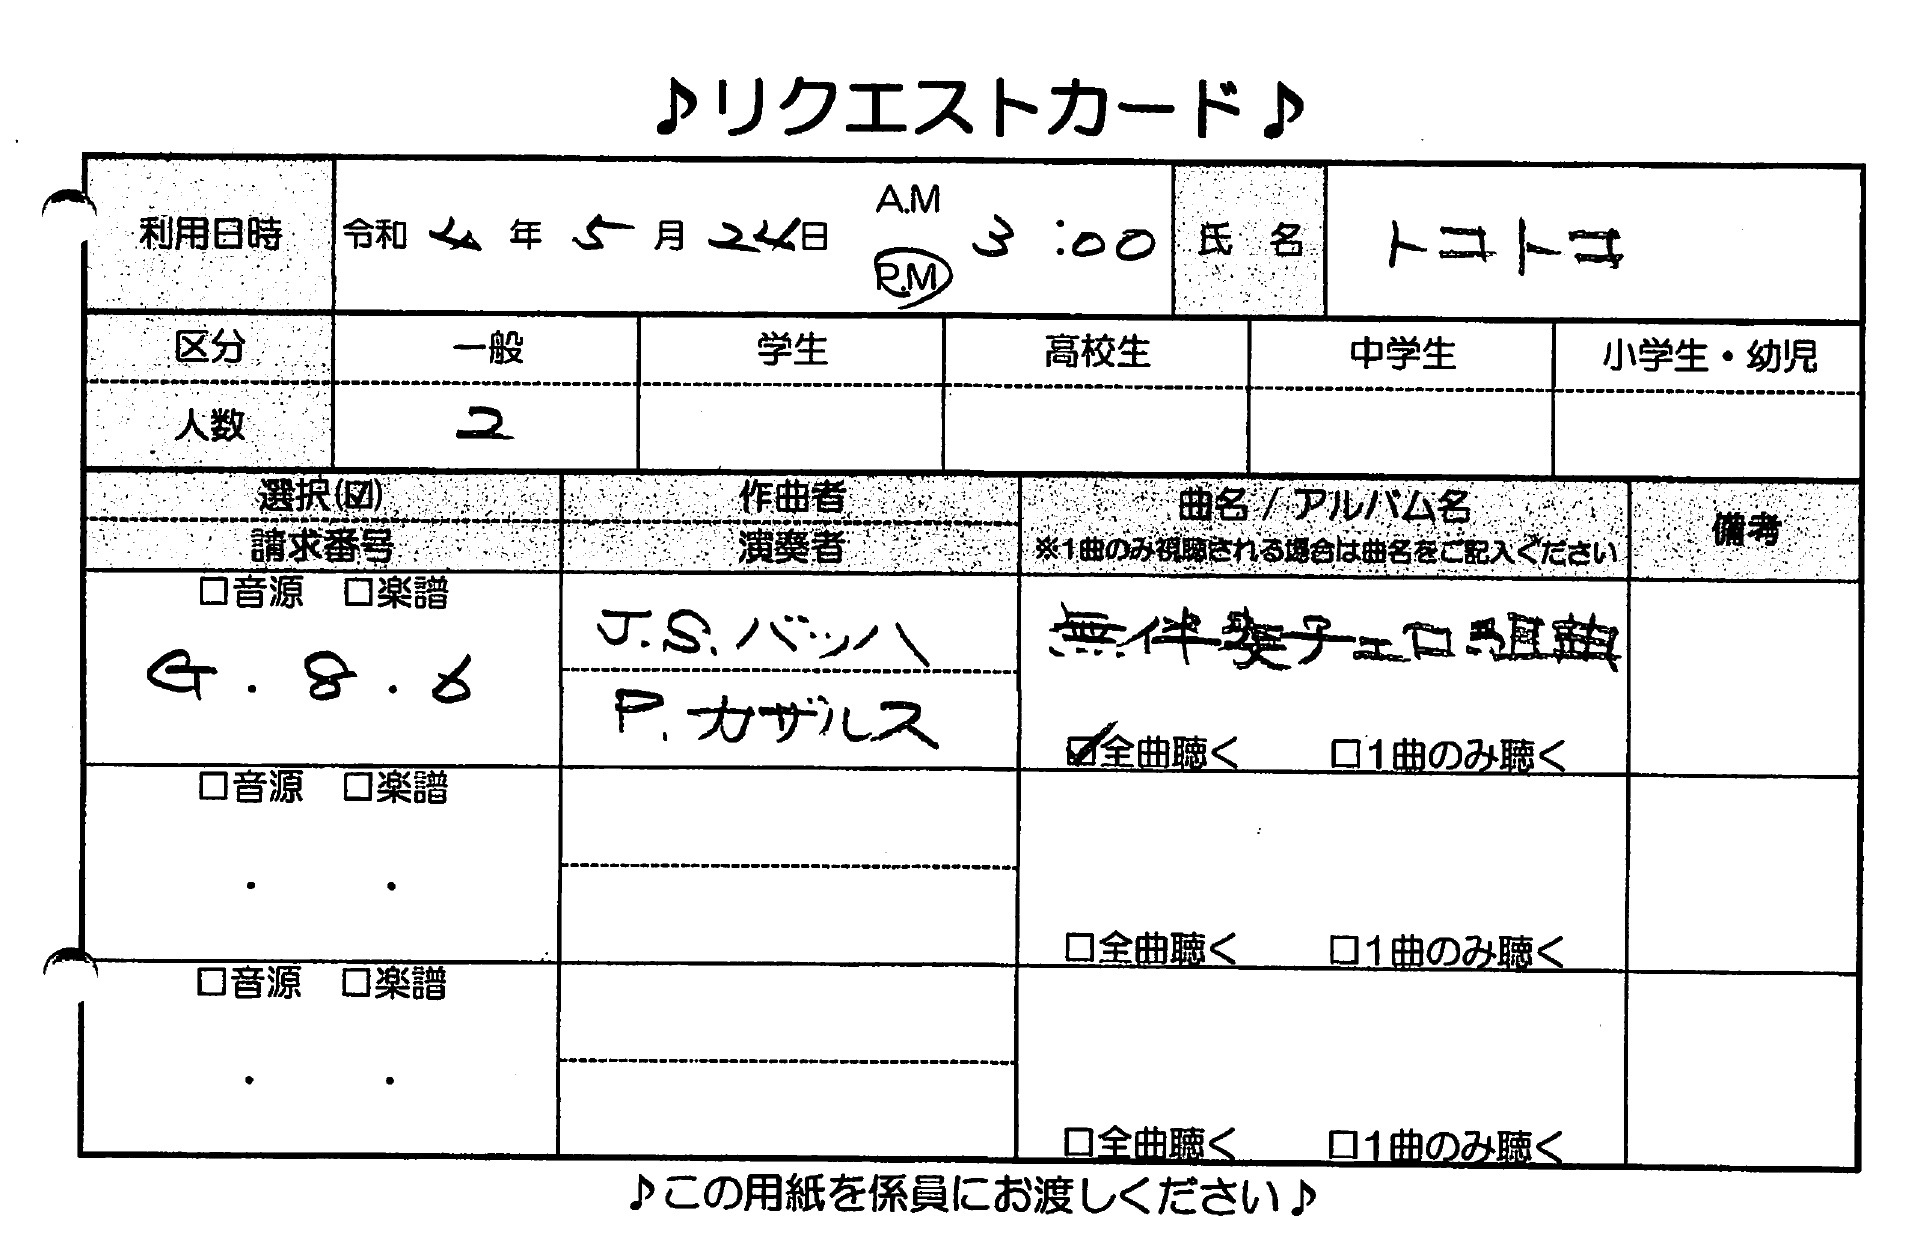 ♪リクエストカード♪
利用日時 令和 4 年 5 月 24日 A.M P.M 3 :00 氏 名 トコトコ
区分 一般 学生 高校生 中学生 小学生・幼児
人数 2
選択(☑) 作曲者 曲名 / アルバム名 備考
請求番号 演奏者 ※1曲のみ視聴される場合は曲名をご記入ください
□音源 □楽譜 J.S.バッハ 無伴奏チェロ組曲
G . 8 . 6 P.カザルス
☑全曲聴く □1曲のみ聴く
□音源 □楽譜
. .
□全曲聴く □1曲のみ聴く
□音源 □楽譜
. .
□全曲聴く □1曲のみ聴く
♪この用紙を係員にお渡しください♪